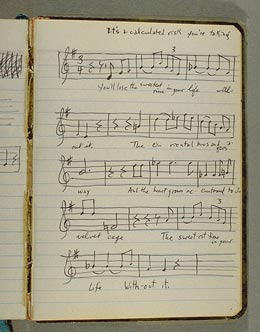 It's a calculated risk you're taking
3
3
4
You'll lose the sweetest time in your life with-
out it. The Oriental music and
way And the heart grows ac customed to
velvet cage The sweetest time
3
in your
Life With-out it.